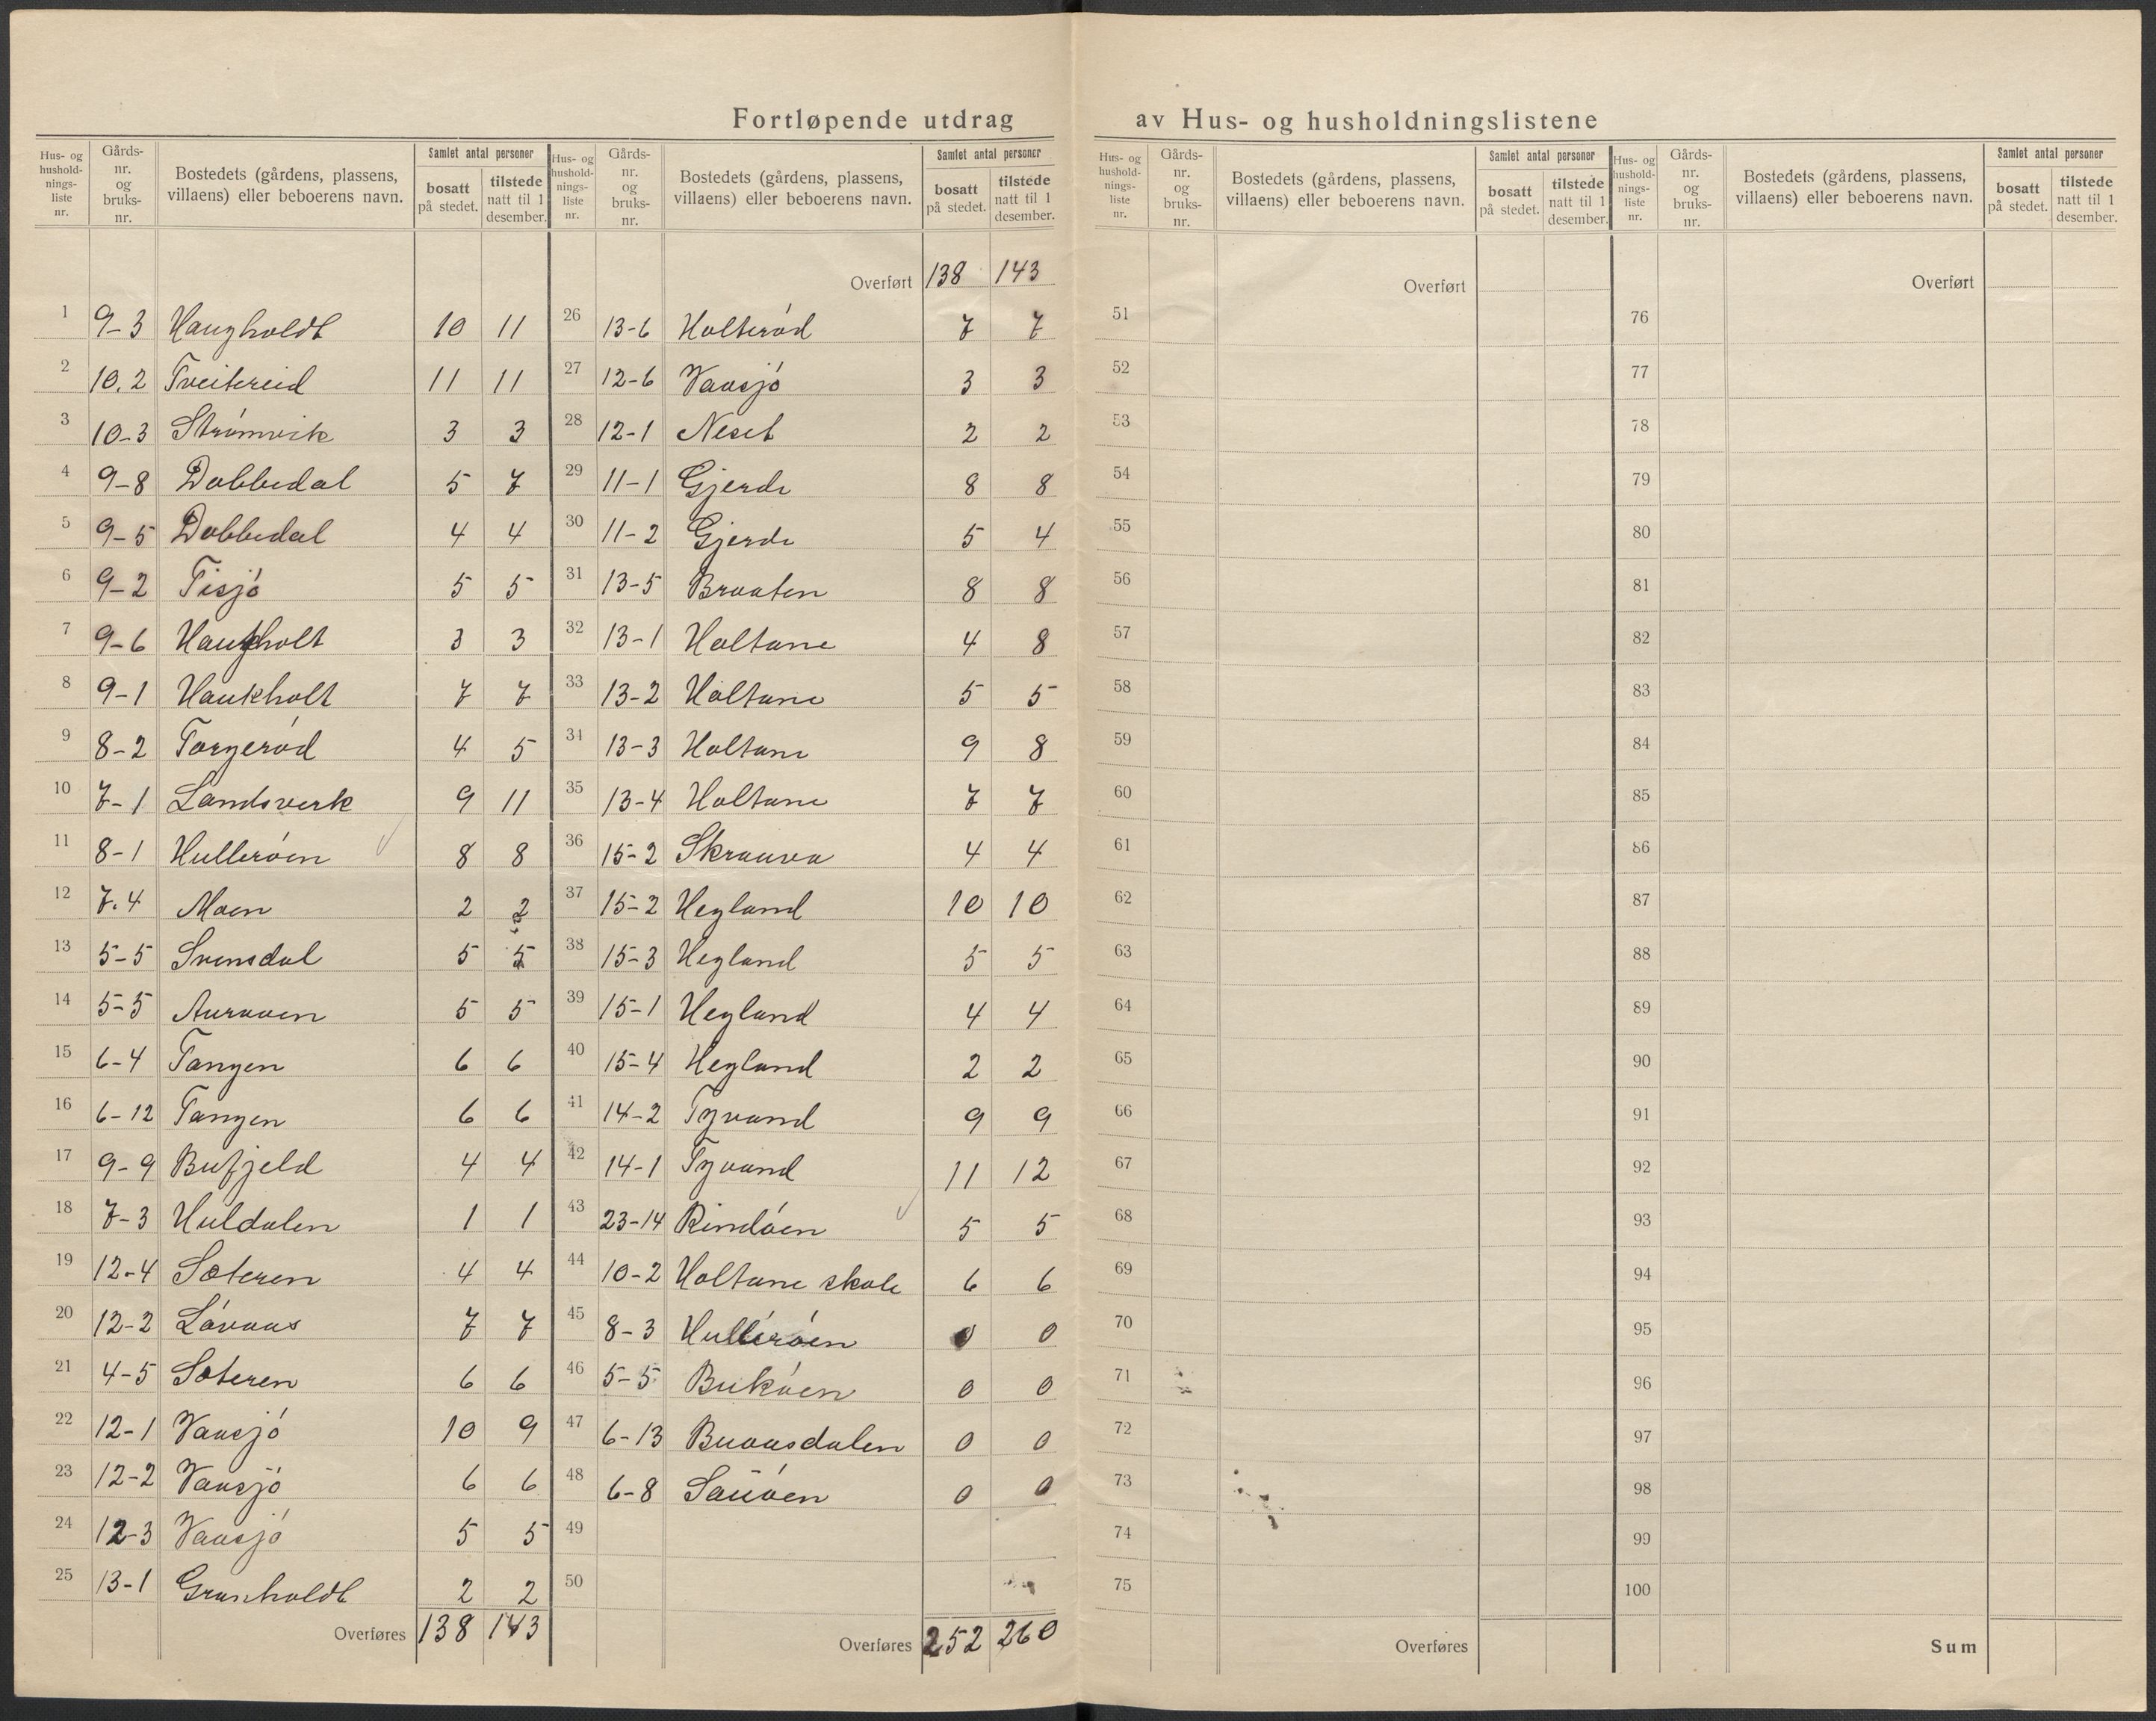 Fortløpende utdrag av Hus- og husholdningslistene
Hus- og hushold-nings-liste nr. | Gårds-nr. og bruks-nr. | Bostedets (gårdens, plassens, villaens) eller beboerens navn. | Samlet antal personer | bosatt på stedet. | tilstede natt til 1 desember.
1 9-3 Haugholdt 10 11
2 10.2 Tveitereid 11 11
3 10-3 Strømvik 3 3
4 9-8 Dobbedal 5 7
5 9-5 Dobbedal 4 4
6 9-2 Tisjó 5 5
7 9-6 Haukholt 3 3
8 9-1 Haukholt 7 7
9 8-2 Torgerød 4 5
10 7-1 Landsverk 9 11
11 8-1 Hulleróen 8 8
12 7.4 Moen 2 2
13 5-5 Svensdal 5 5
14 5-5 Auraaen 5 5
15 6-4 Tangen 6 6
16 6-12 Tangen 6 6
17 9-9 Bufjeld 4 4
18 7-3 Huldalen 1 1
19 12-4 Sæteren 4 4
20 12-2 Lóvaas 7 7
21 4-5 Sæteren 6 6
22 12-1 Vansjó 10 9
23 12-2 Vansjó 6 6
24 12-3 Vansjó 5 5
25 13-1 Granholdt 2 2
Overføres 138 143
Hus- og hushold-nings-liste nr. | Gårds-nr. og bruks-nr. | Bostedets (gårdens, plassens, villaens) eller beboerens navn. | Samlet antal personer | bosatt på stedet. | tilstede natt til 1 desember.
Overført 138 143
26 13-6 Holteród 7 7
27 12-6 Vansjó 3 3
28 12-1 Neset 2 2
29 11-1 Gjerde 8 8
30 11-2 Gjerde 5 4
31 13-5 Braaten 8 8
32 13-1 Holtane 4 8
33 13-2 Holtane 5 5
34 13-3 Holtane 9 8
35 13-4 Holtane 7 7
36 15-2 Skraava 4 4
37 15-2 Hegland 10 10
38 15-3 Hegland 5 5
39 15-1 Hegland 4 4
40 15-4 Hegland 2 2
41 14-2 Tyvand 9 9
42 14-1 Tyvand 11 12
43 23-14 Rindóen 5 5
44 10-2 Holtane skole 6 6
45 8-3 Hulleróen 0 0
46 5-5 Bukóen 0 0
47 6-13 Buaasdalen 0 0
48 6-8 0 0
49
50
Overføres 252 260
Hus- og hushold-nings-liste nr. | Gårds-nr. og bruks-nr. | Bostedets (gårdens, plassens, villaens) eller beboerens navn. | Samlet antal personer | bosatt på stedet. | tilstede natt til 1 desember.
Overført
51
52
53
54
55
56
57
58
59
60
61
62
63
64
65
66
67
68
69
70
71
72
73
74
75
Overføres
Hus- og hushold-nings-liste nr. | Gårds-nr. og bruks-nr. | Bostedets (gårdens, plassens, villaens) eller beboerens navn. | Samlet antal personer | bosatt på stedet. | tilstede natt til 1 desember.
Overført
76
77
78
79
80
81
82
83
84
85
86
87
88
89
90
91
92
93
94
95
96
97
98
99
100
Sum